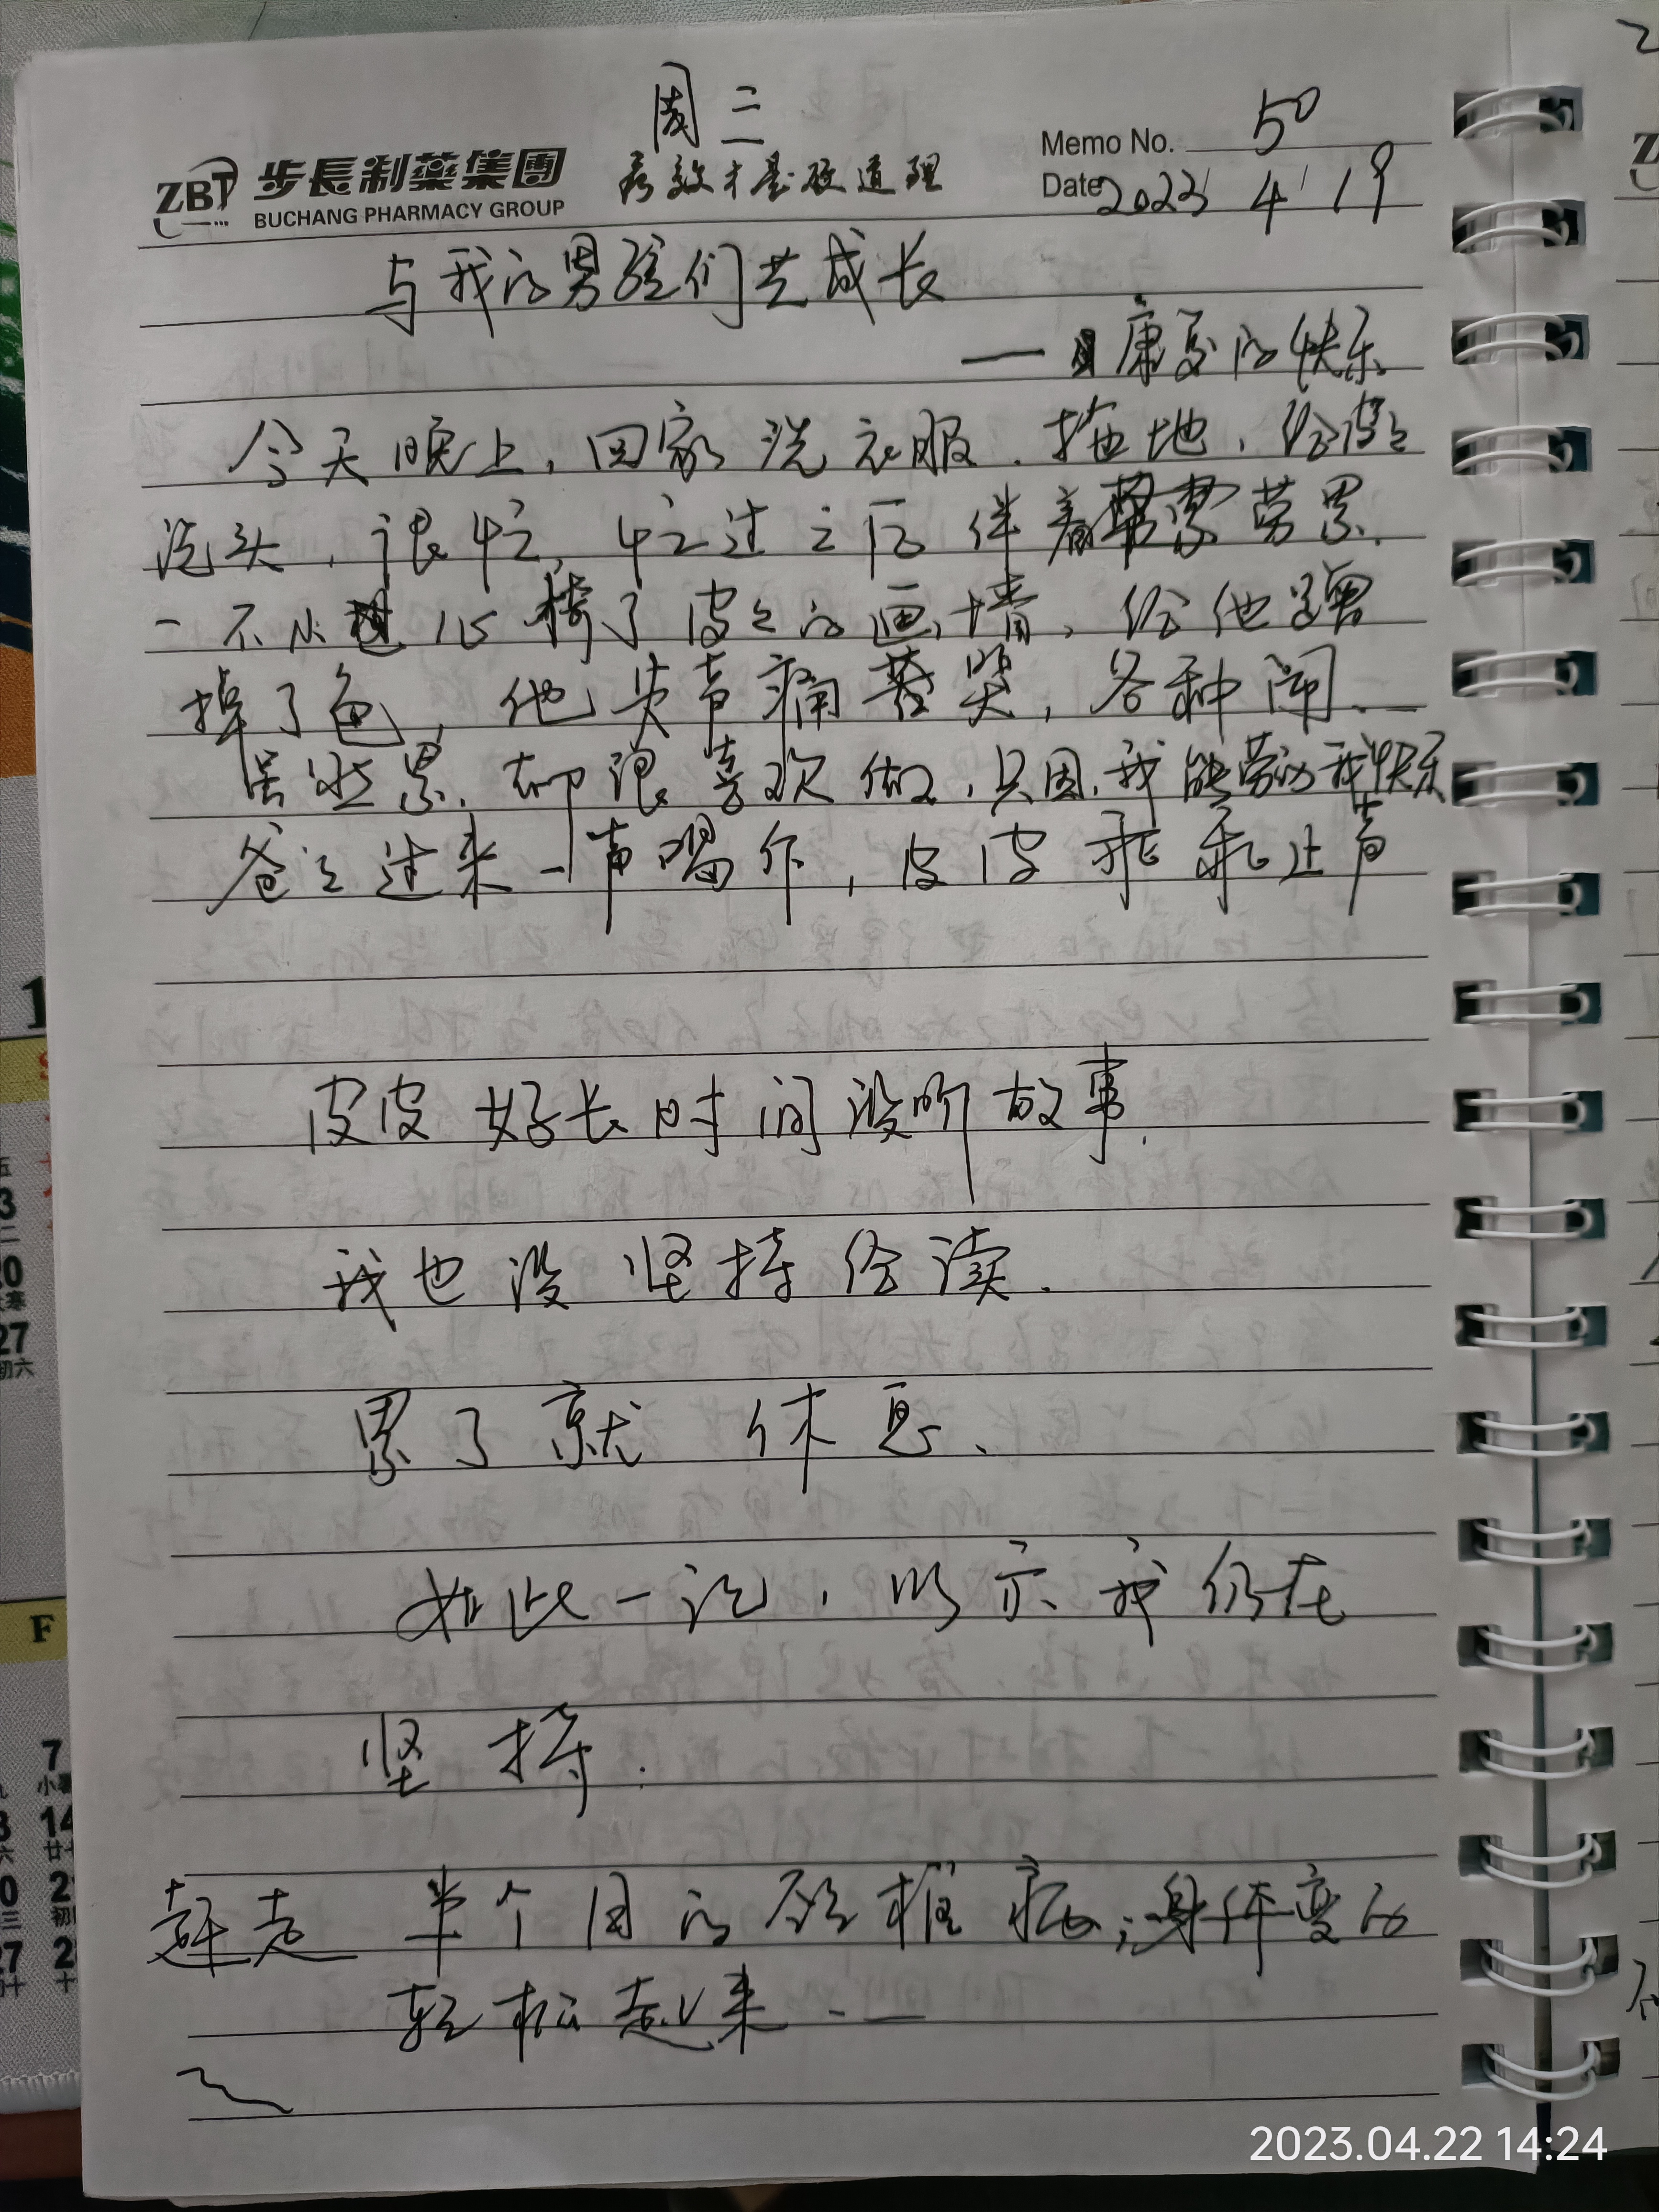 周三
ZBT 步長制藥集團
BUCHANG PHARMACY GROUP
疗效才是硬道理
Memo No. 50
Date 2023 4 19
与我的男孩们共成长
——康复的快乐
今天晚上，回家洗衣服、拖地，给皮皮
洗头，很忙，忙过之后伴着劳累.
一不小心 了皮皮的画,情，给他蹭
掉了色，他失声痛苦哭，各种闹.—
虽然累，却很喜欢做，只因，我能劳动我快乐
爸爸过来一声喝作，皮皮乖乖止声
皮皮好长时间没听故事.
我也没坚持给读.
累了就 休息、
如此一记，以示我仍在
坚持.
半个月的颈椎病，身体变的
轻松起来.—
2023.04.22 14:24